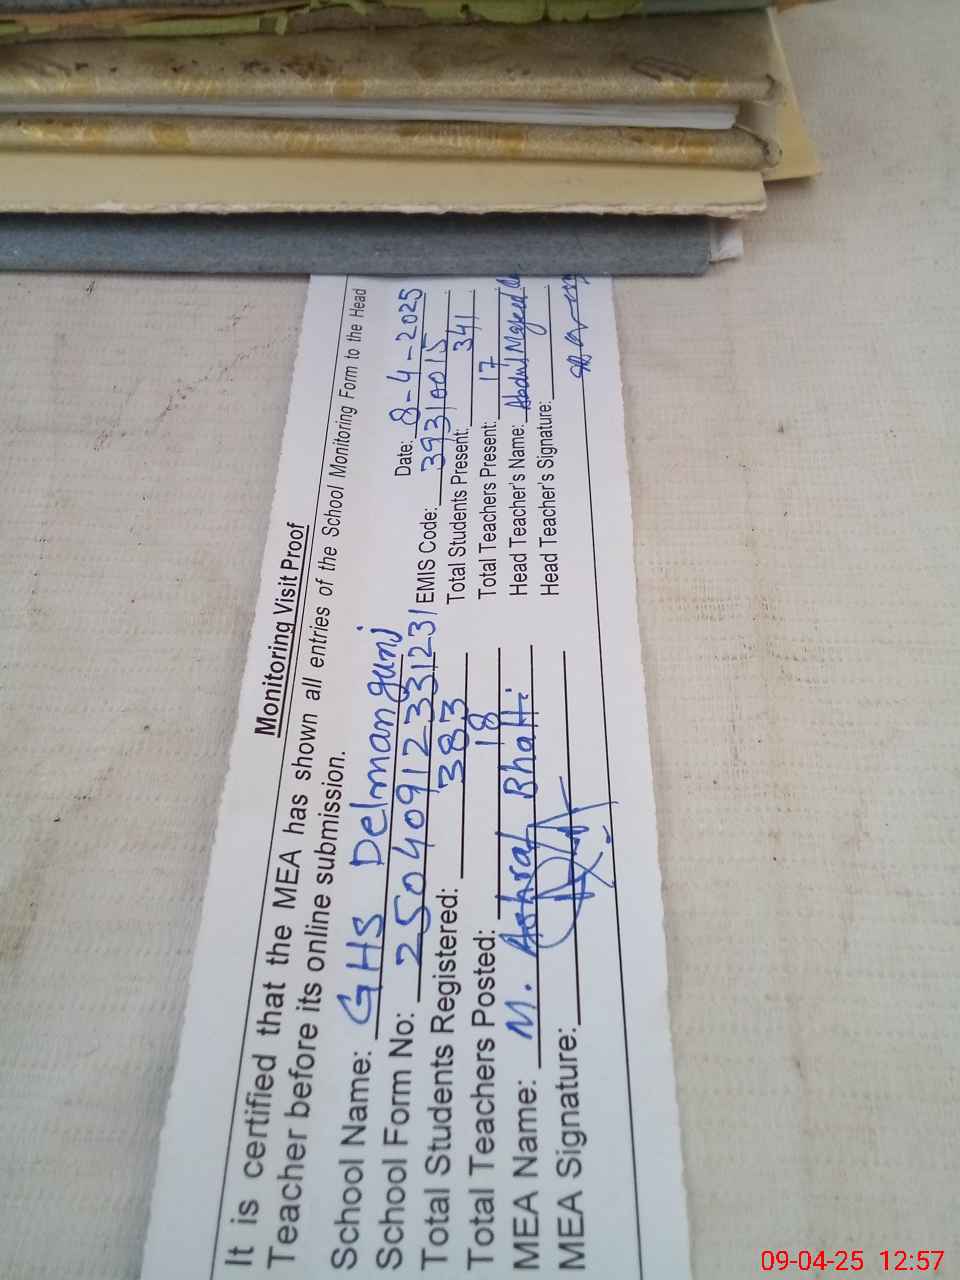 Monitoring Visit Proof
It is certified that the MEA has shown all entries of the School Monitoring Form to the Head
Teacher before its online submission.
School Name: GHS Delmangunj Date: 8-4-2025
School Form No: 25040912331231 EMIS Code: 39310015
Total Students Registered: 383 Total Students Present: 341
Total Teachers Posted: 18 Total Teachers Present: 17
MEA Name: M. Ashraf Bhatti Head Teacher's Name: Abdul Majeed
MEA Signature: Head Teacher's Signature:
09-04-25 12:57